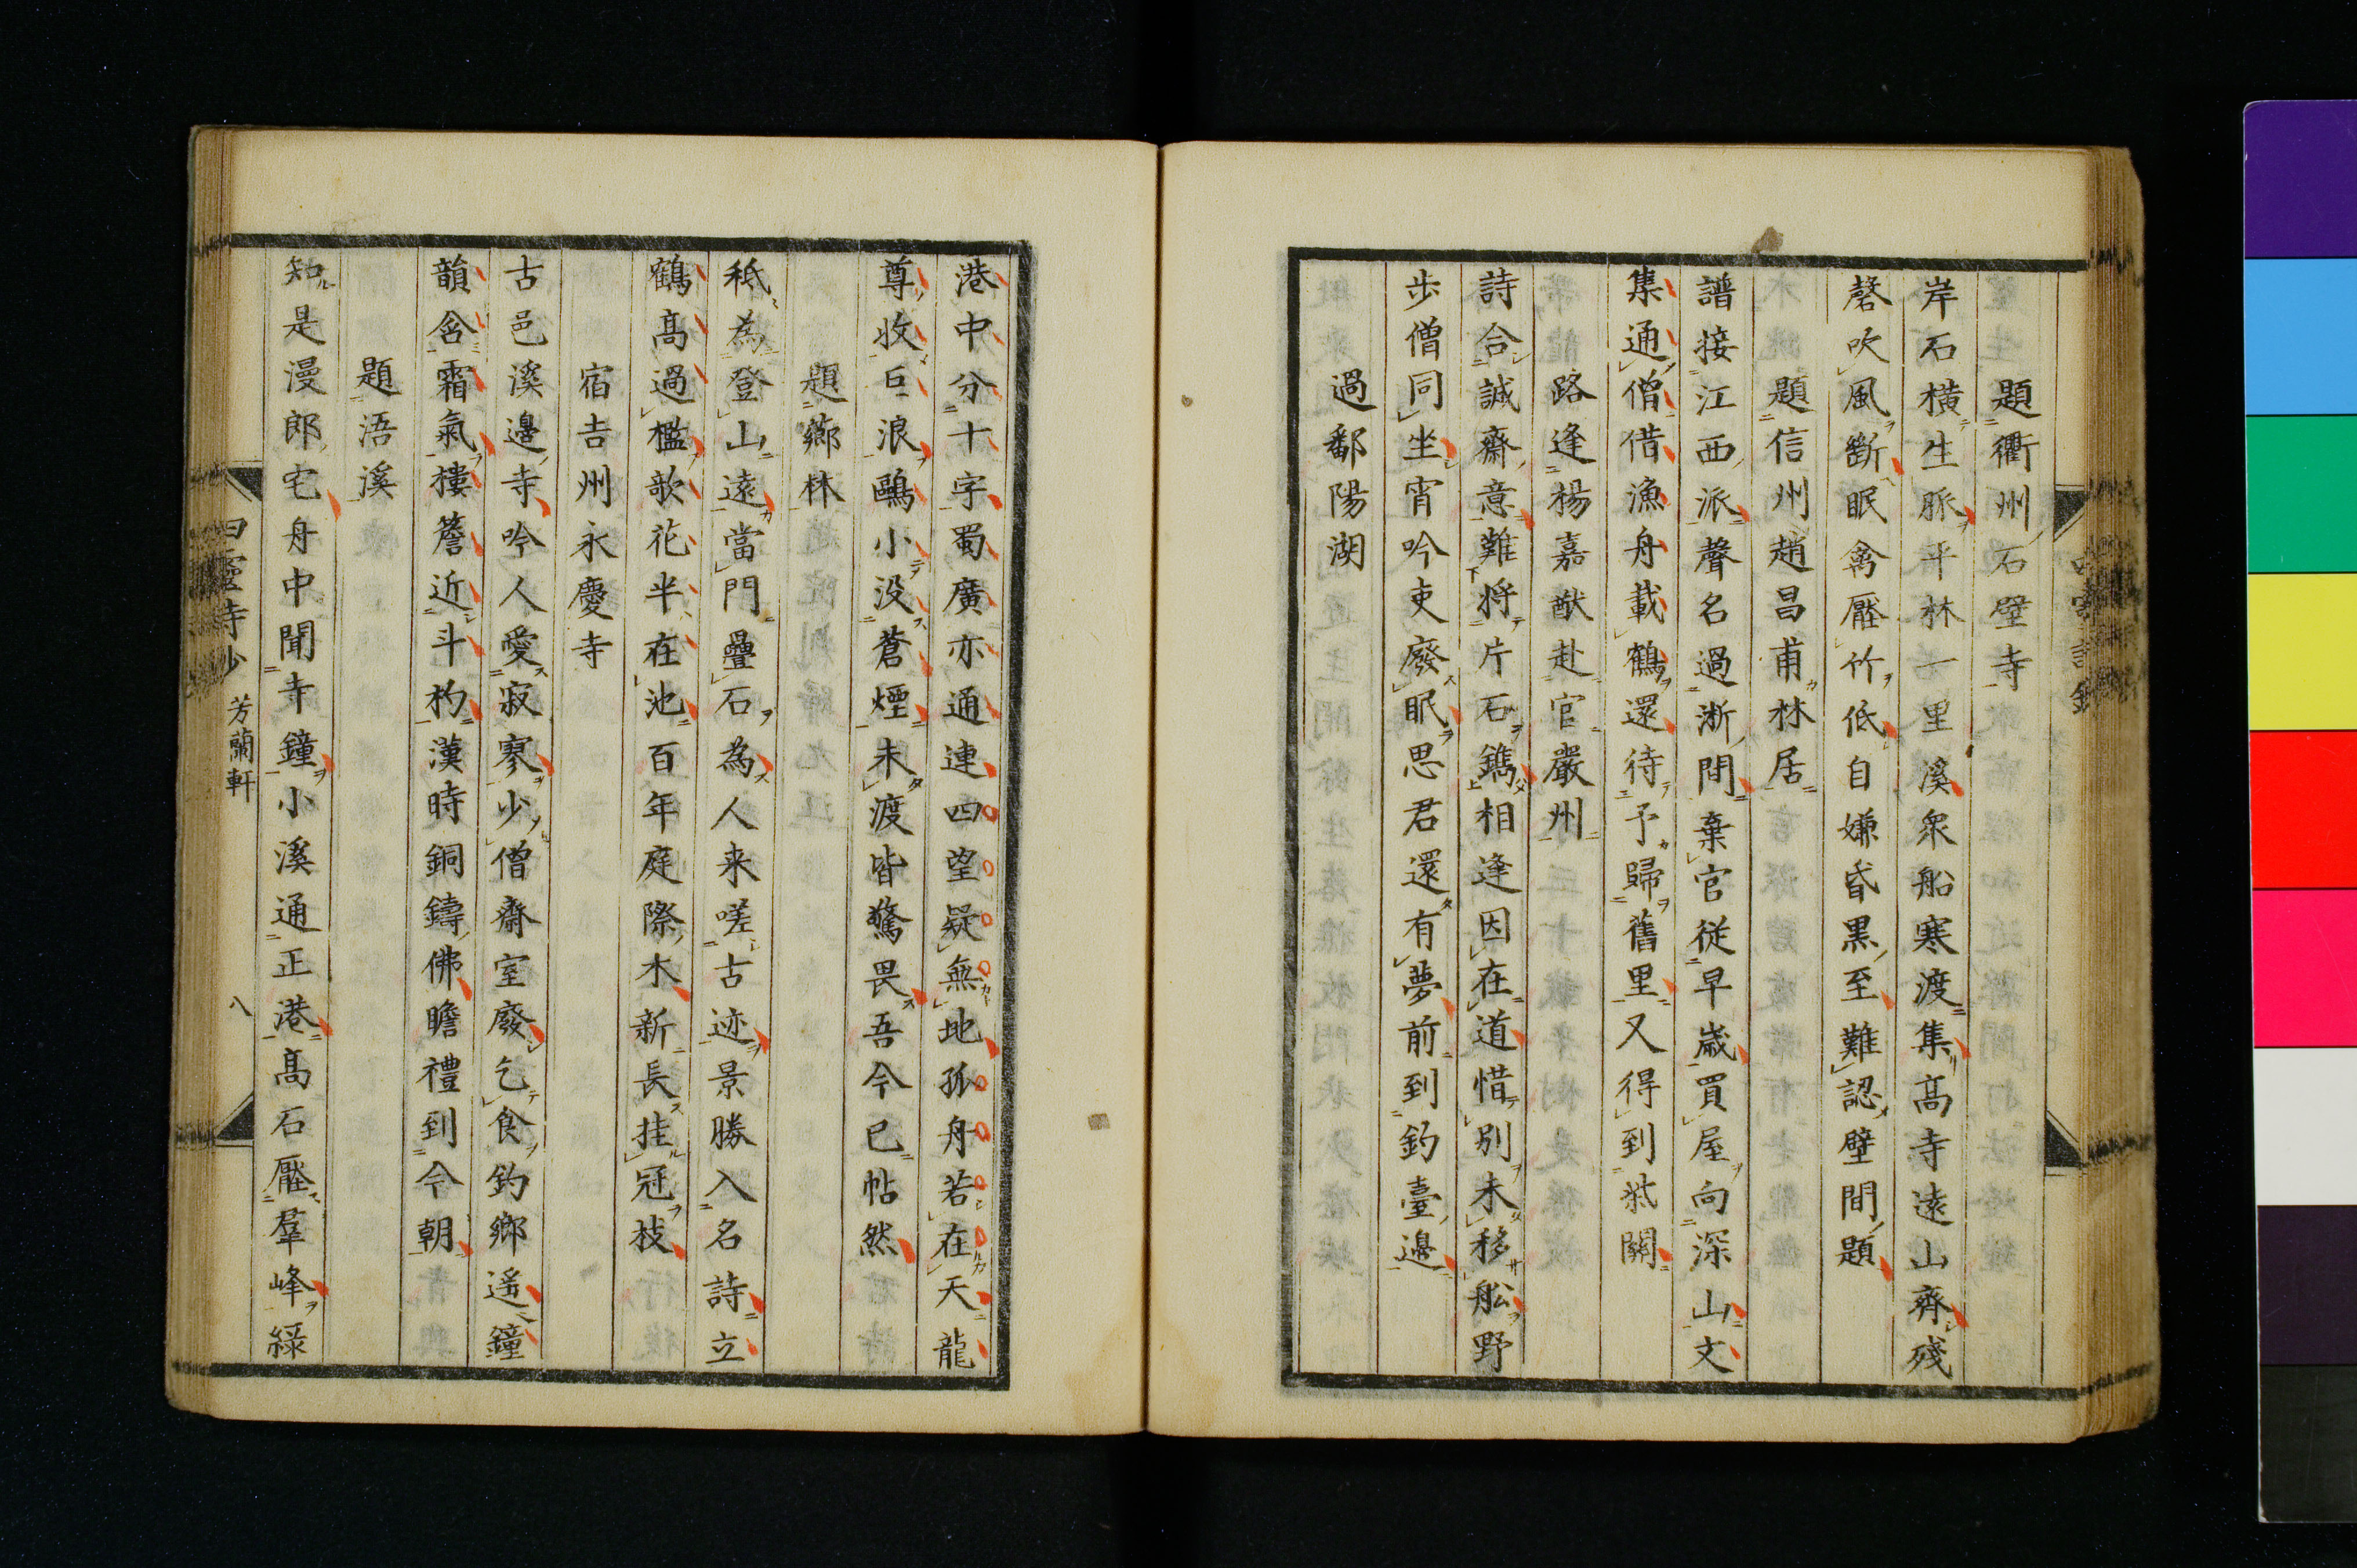 題衢州石壁寺
岸石橫生脈平林一里溪衆船寒渡集髙寺逺山齊殘
磬吹風斷眠禽壓竹低自嫌昏黒至難認壁間題
題信州趙昌甫林居
譜接江西派聲名過淅間棄官従早歳買屋向深山文
集通僧借漁舟載鶴還待予歸舊里又得到柴關
路逢楊嘉猷赴官嚴州
詩合誠齋意難将片石鐫相逢因在道惜别未移舩野
歩僧同坐宵吟吏廢眠思君還有夢前到釣臺邊
過鄱陽湖
港中分十字蜀廣亦通連四望疑無地孤舟若在天龍
尊收巨浪鷗小没蒼煙未渡皆驚畏吾今已帖然
題薌林
秪為登山逺當門疊石為人来嗟古迹景勝入名詩立
鶴髙過檻歌花半在池百年庭際木新長挂冠枝
宿吉州永慶寺
古邑溪邊寺吟人愛寂寥少僧齋室廢乞食釣鄉遥鐘
韻含霜氣樓簷近斗杓漢時銅鑄佛瞻禮到今朝
題浯溪
知是漫郎宅舟中聞寺鐘小溪通正港髙石壓羣峰緑
四靈詩鈔 芳蘭軒 八